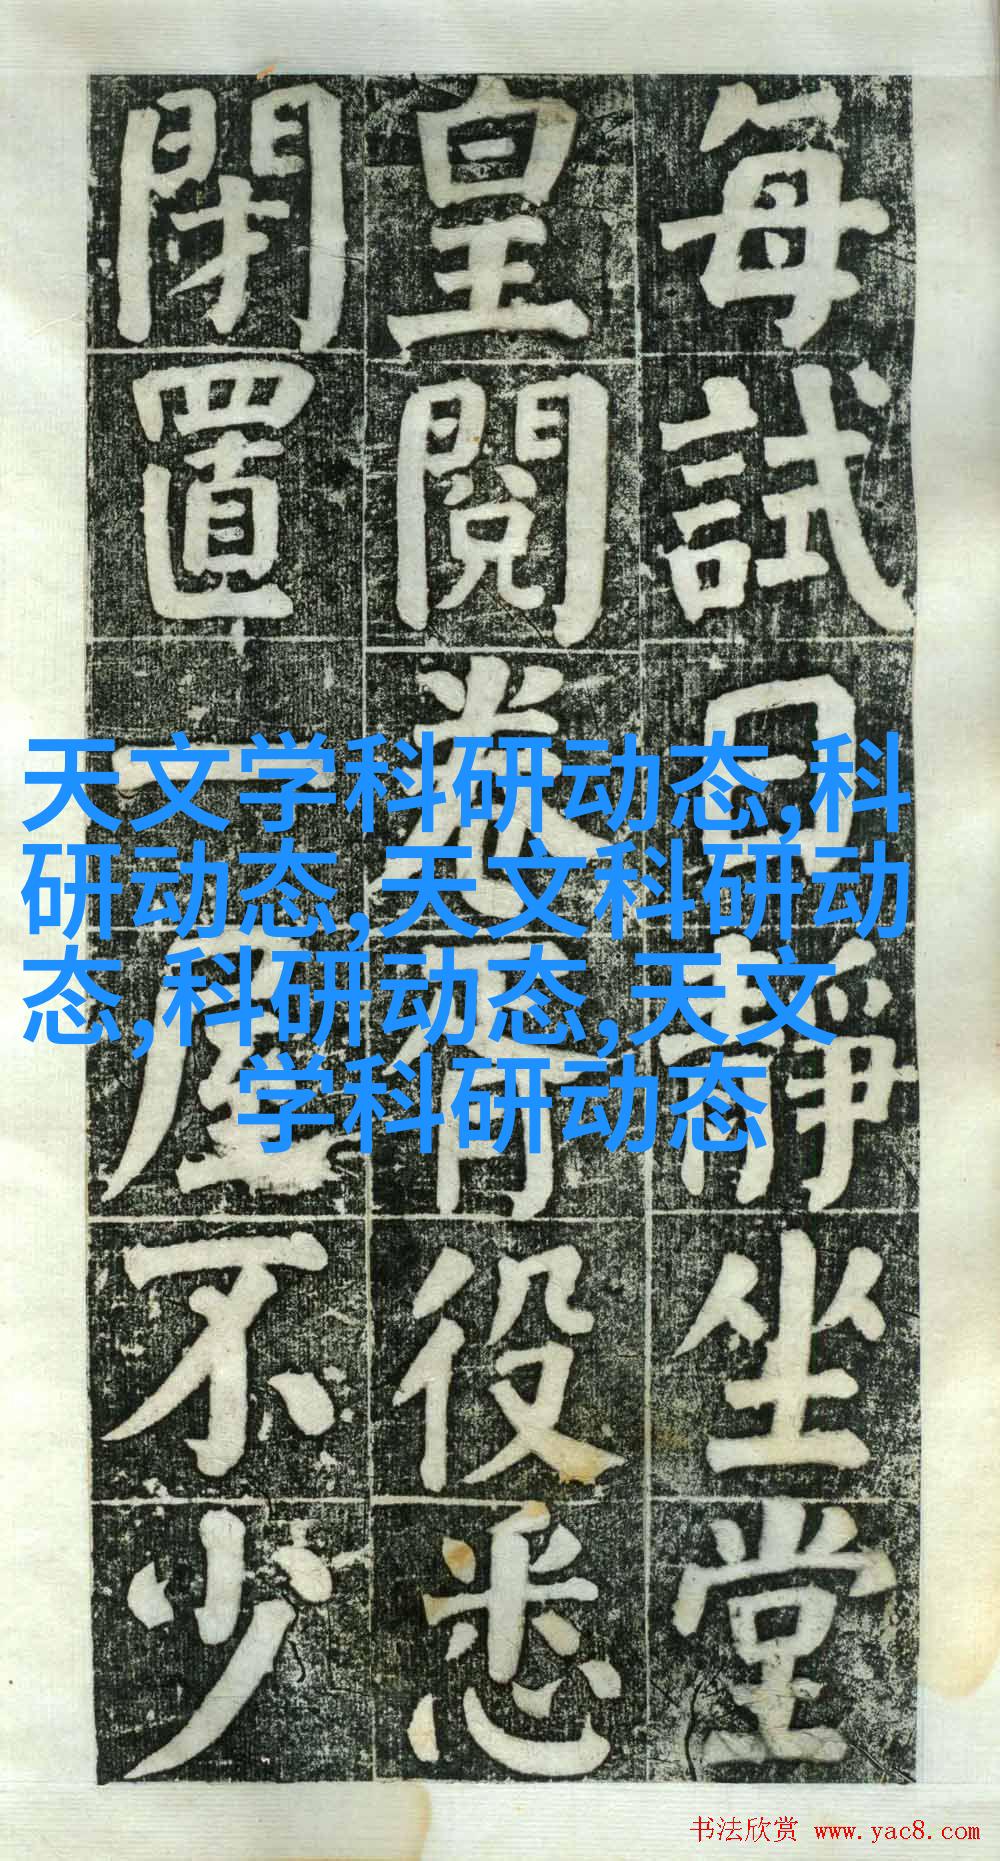 每試日靜坐堂
皇閱卷胥役悉
閉置一屋不少
天文学科研动态,科
研动态,天文科研动
态,科研动态,天文
学科研动态
书法欣赏 www.yac8.com